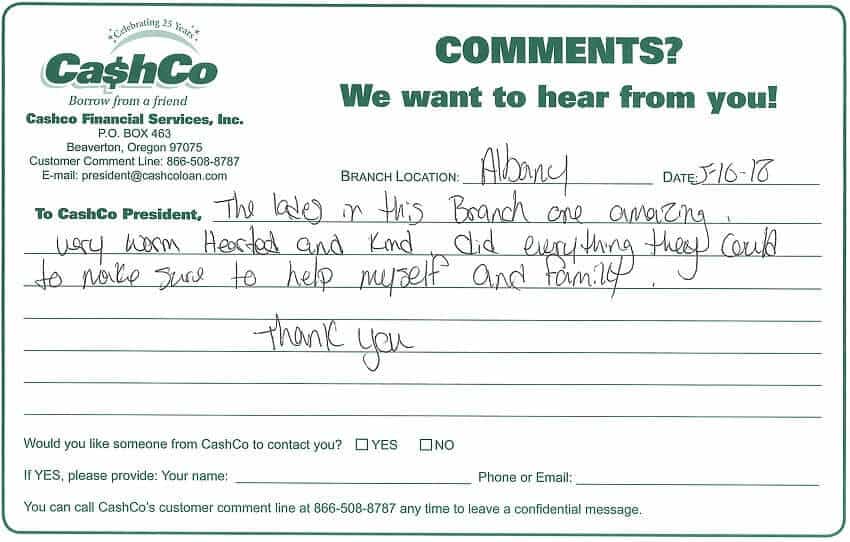 Celebrating 25 Years
Ca$hCo
Borrow from a friend
Cashco Financial Services, Inc.
P.O. BOX 463
Beaverton, Oregon 97075
Customer Comment Line: 866-508-8787
E-mail: president@cashcoloan.com
COMMENTS?
We want to hear from you!
BRANCH LOCATION: Albany DATE: 5-16-18
To CashCo President, The ladies in this Branch are amazing.
very warm Hearted and Kind. did everything they could
to make sure to help myself and family.
thank you
Would you like someone from CashCo to contact you? ☐ YES ☐ NO
If YES, please provide: Your name: Phone or Email:
You can call CashCo's customer comment line at 866-508-8787 any time to leave a confidential message.